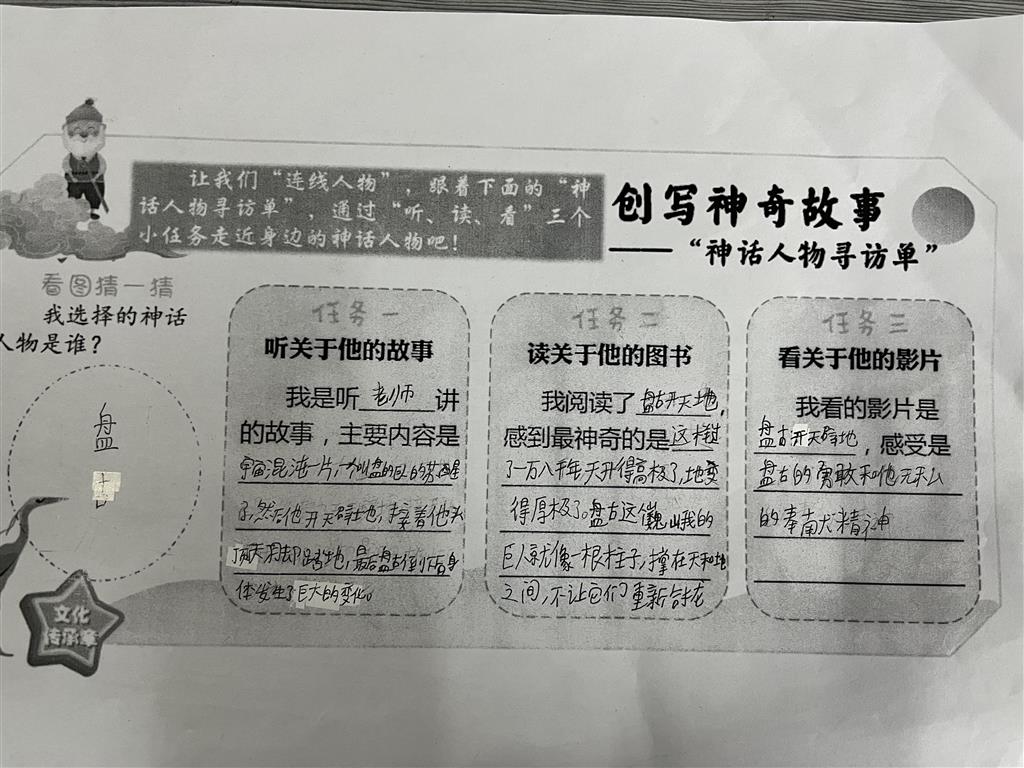 让我们“连线人物”，跟着下面的“神
话人物寻访单”，通过“听、读、看”三个
小任务走近身边的神话人物吧！
创写神奇故事
——“神话人物寻访单”
看图猜一猜
我选择的神话
人物是谁？
盘
古
文化
传承章
任务一
听关于他的故事
我是听老师讲
的故事，主要内容是
宇宙混沌一片，一个叫盘的巨的苏醒
了，然后他开天辟地，接着他头
顶天用脚踏地，最后盘古倒下后身
体发生了巨大的变化。
任务二
读关于他的图书
我阅读了盘古开天地，
感到最神奇的是这样过
了一万八千年天升得高极了，地变
得厚极了。盘古这个巍山我的
巨人就像一根柱子，撑在天和地
之间，不让它们重新合拢
任务三
看关于他的影片
我看的影片是
盘古开天辟地，感受是
盘古的勇敢和他无私
的奉献精神